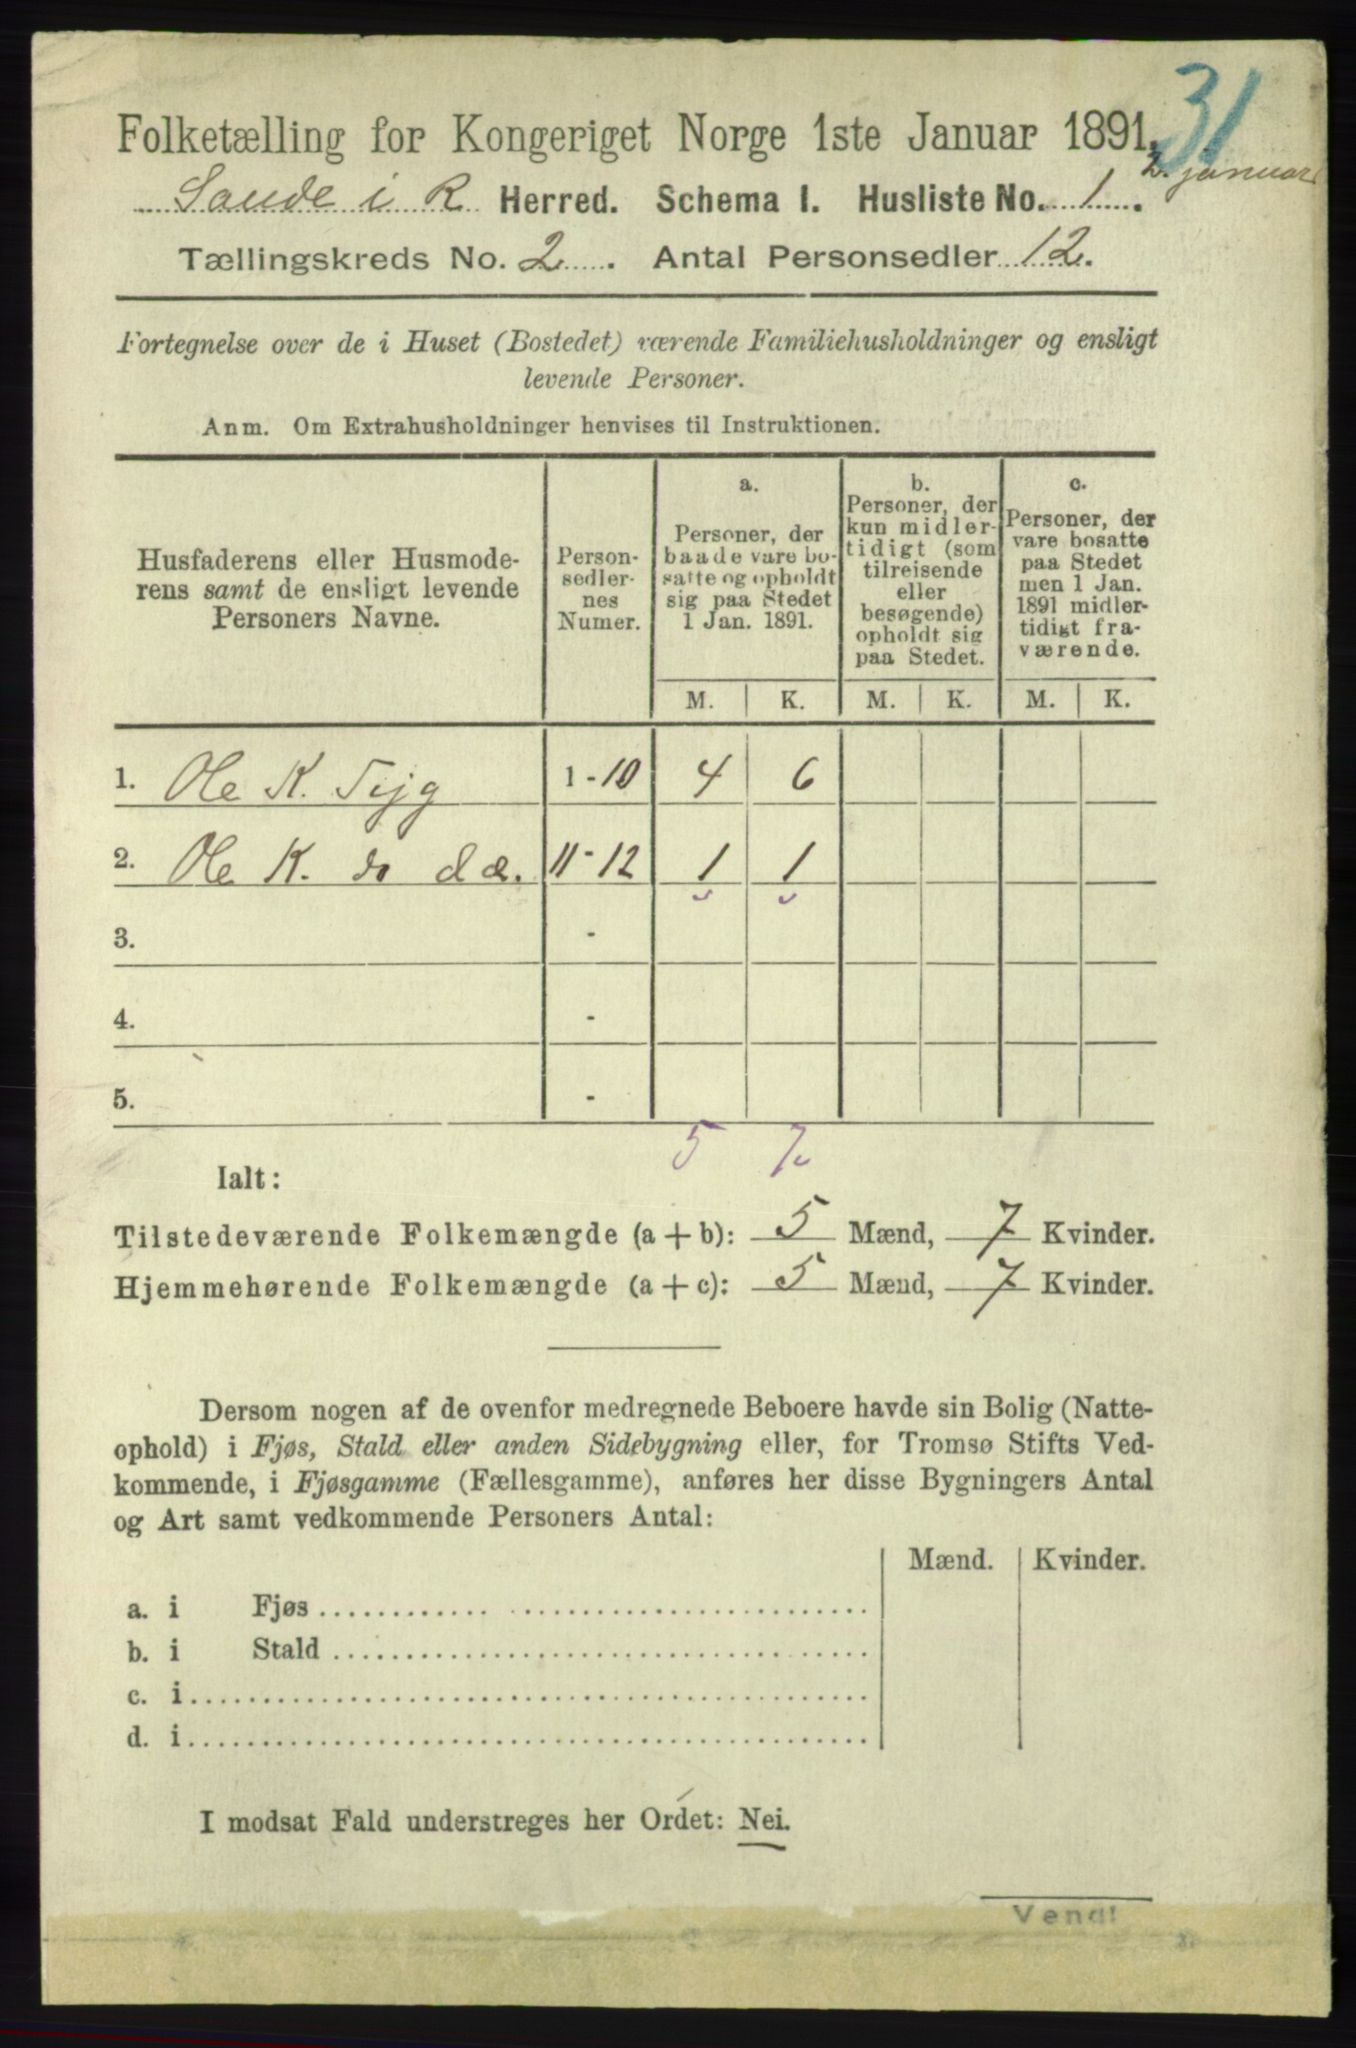 31
Folketælling for Kongeriget Norge 1ste Januar 1891.
2. januar
Saude i R Herred. Schema I. Husliste No. 1.
Tællingskreds No. 2. Antal Personsedler 12.
Fortegnelse over de i Huset (Bostedet) værende Familiehusholdninger og ensligt
levende Personer.
Anm. Om Extrahusholdninger henvises til Instruktionen.
Husfaderens eller Husmode-
rens samt de ensligt levende
Personers Navne.
Person-
sedler-
nes
Numer.
a.
Personer, der
baade vare bo-
satte og opholdt
sig paa Stedet
1 Jan. 1891.
b.
Personer, der
kun midler-
tidigt (som
tilreisende
eller
besøgende)
opholdt sig
paa Stedet.
c.
Personer, der
vare bosatte
paa Stedet
men 1 Jan.
1891 midler-
tidigt fra-
værende.
M. K. M. K. M. K.
1. Ole K. 1 - 10 4 6
2. Ole K. do 11 - 12 1 1
3. -
4. -
5. -
5 7
Ialt:
Tilstedeværende Folkemængde (a + b): 5 Mænd, 7 Kvinder.
Hjemmehørende Folkemængde (a + c): 5 Mænd, 7 Kvinder.
Dersom nogen af de ovenfor medregnede Beboere havde sin Bolig (Natte-
ophold) i Fjøs, Stald eller anden Sidebygning eller, for Tromsø Stifts Ved-
kommende, i Fjøsgamme (Fællesgamme), anføres her disse Bygningers Antal
og Art samt vedkommende Personers Antal:
Mænd. Kvinder.
a. i Fjøs
b. i Stald
c. i
d. i
I modsat Fald understreges her Ordet: Nei.
Vend!